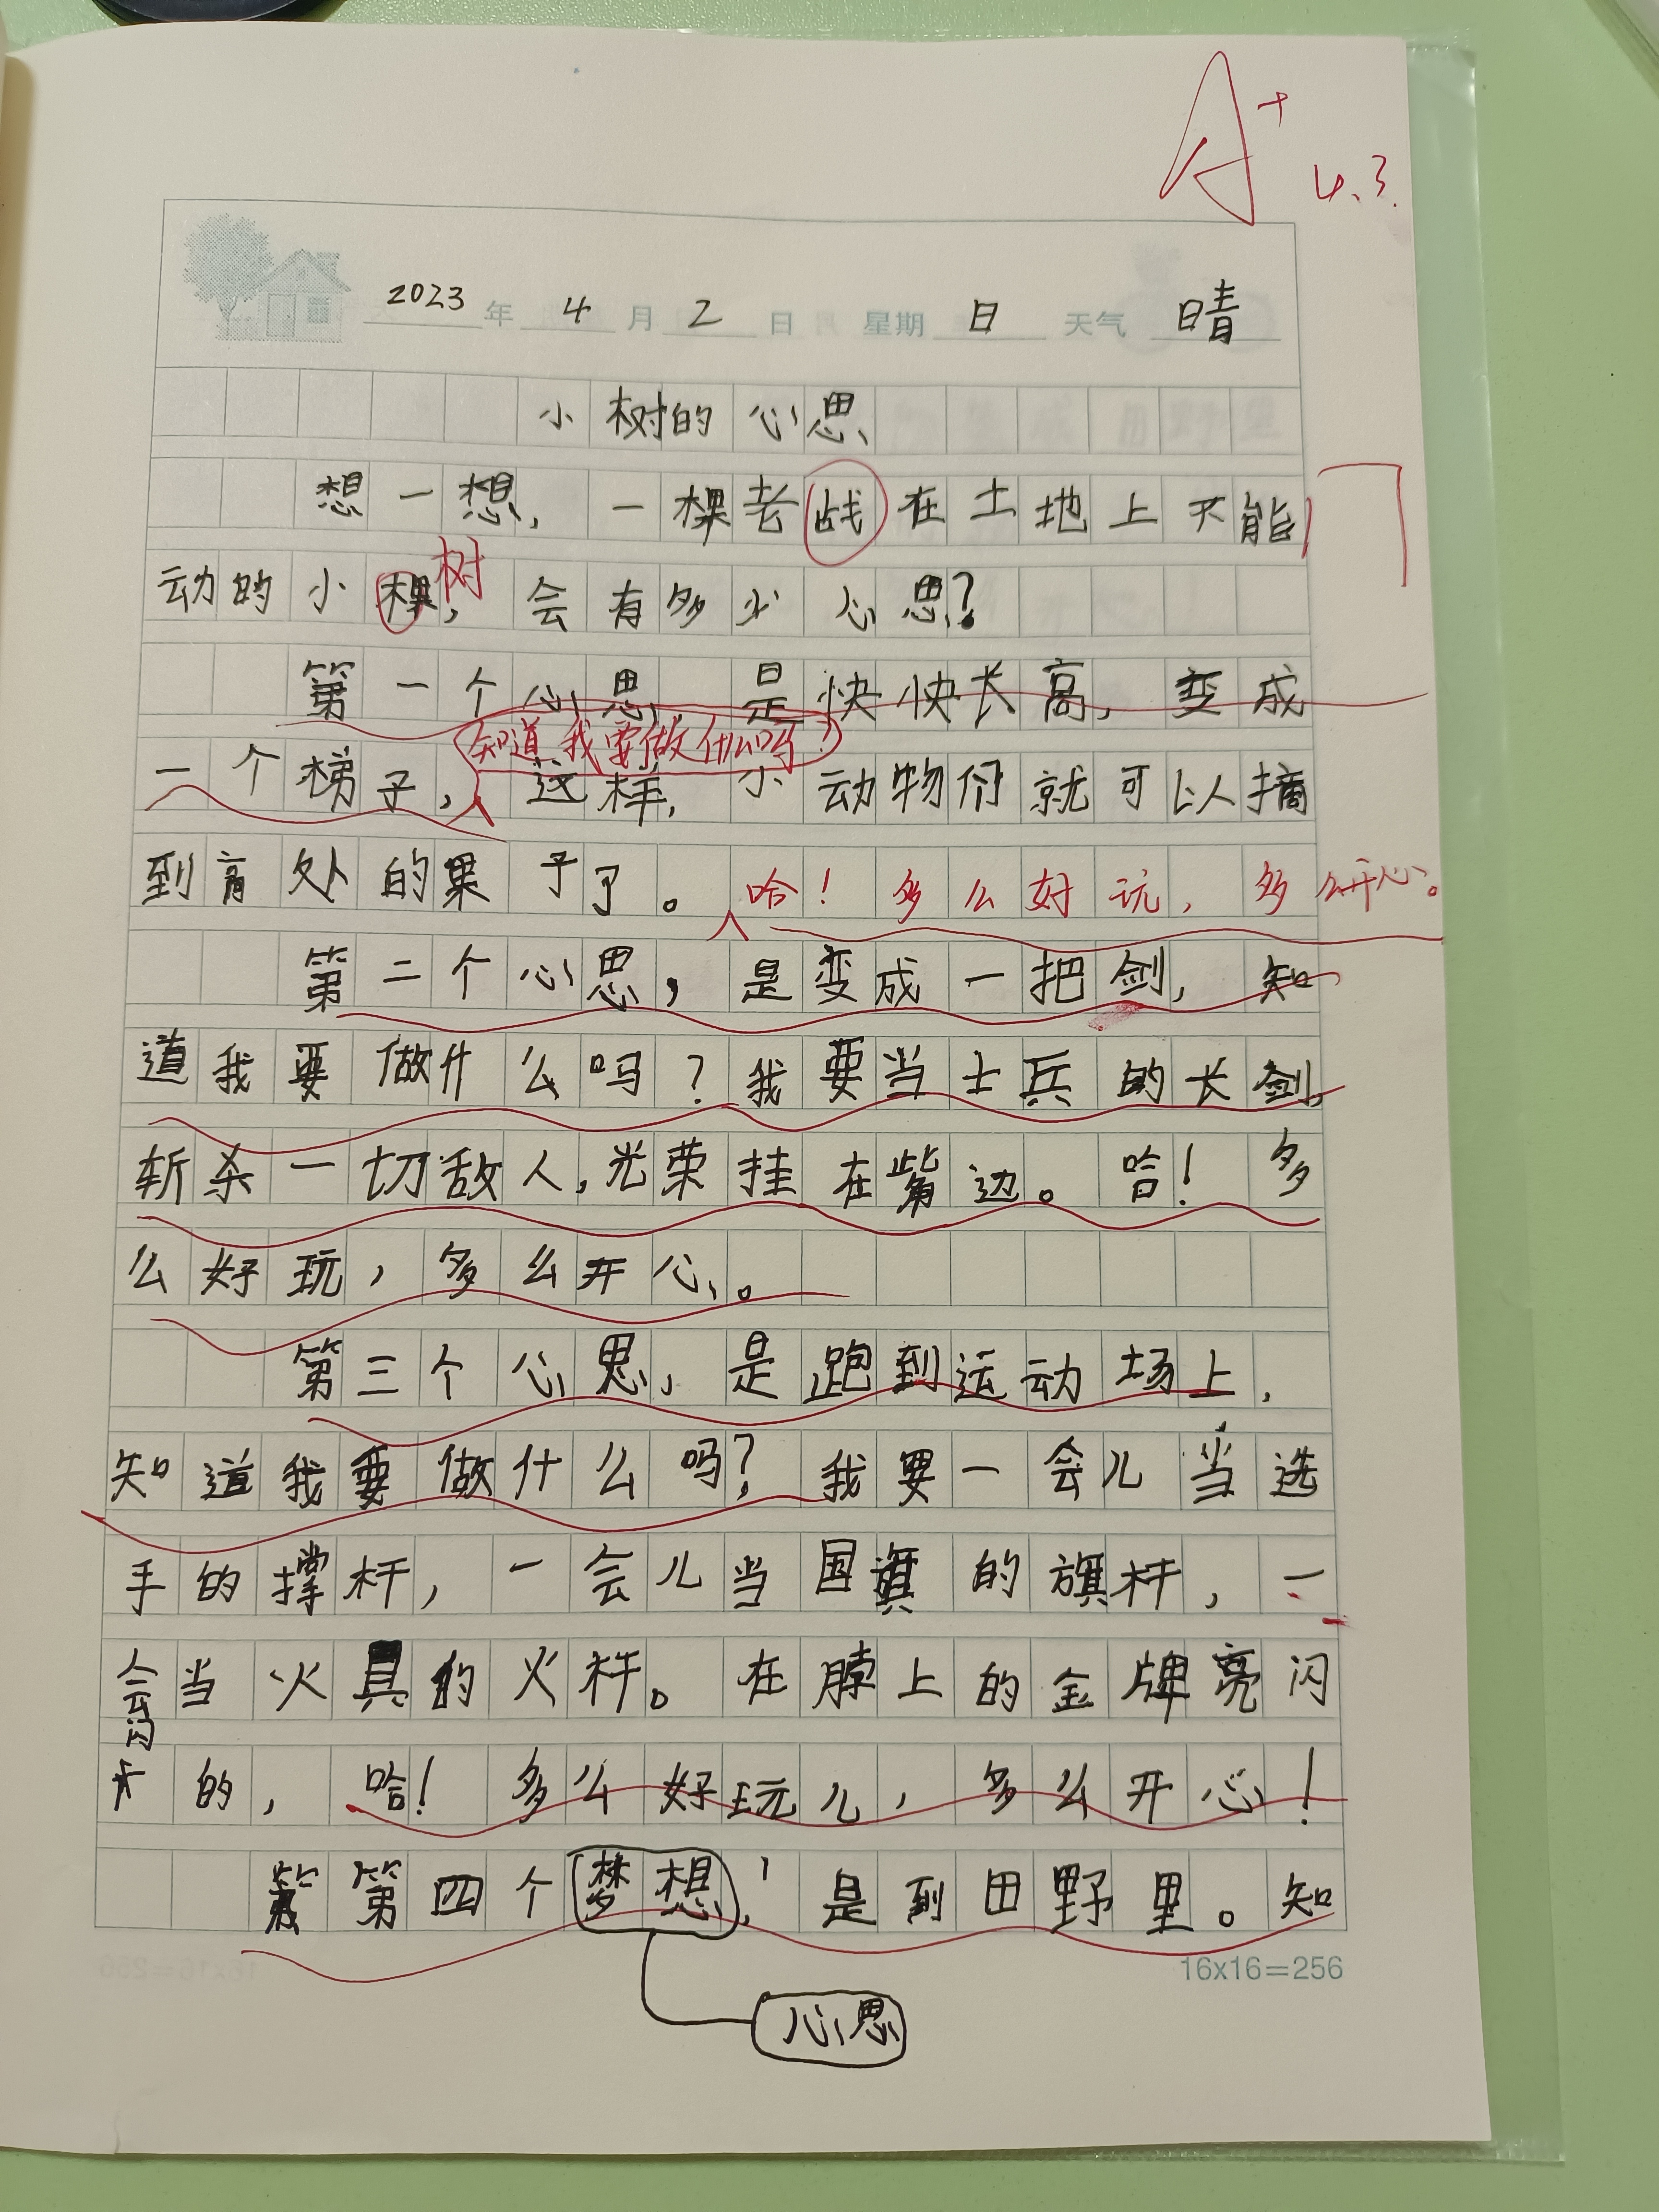 A+ 4.3
2023年4月2日 星期日 天气晴
小树的心思
想一想，一棵老战在土地上不能
动的小棵，会有多少心思？
树
第一个心思 是快快长高，变成
知道我要做什么吗？
一个梯子，这样，小动物们就可以摘
到高处的果子了。哈！多么好玩，多么开心。
第二个心思，是变成一把剑，知
道我要做什么吗？我要当士兵的长剑，
斩杀一切敌人，光荣挂在嘴边。哈！多
么好玩，多么开心。
第三个心思，是跑到运动场上，
知道我要做什么吗？我要一会儿当选
手的撑杆，一会儿当国旗的旗杆，一
会当火具的火杆。在脖上的金牌亮闪
闪
的，哈！多么好玩儿，多么开心！
第四个梦想，是到田野里。知
16x16=256
心思